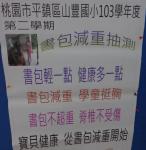 桃園市平鎮區山豐國小103學年度
第二學期
書包減重抽測
書包輕一點 健康多一點
書包減重 學童挺胸
書包不超重 脊椎不受傷
寶貝健康 從書包減重開始